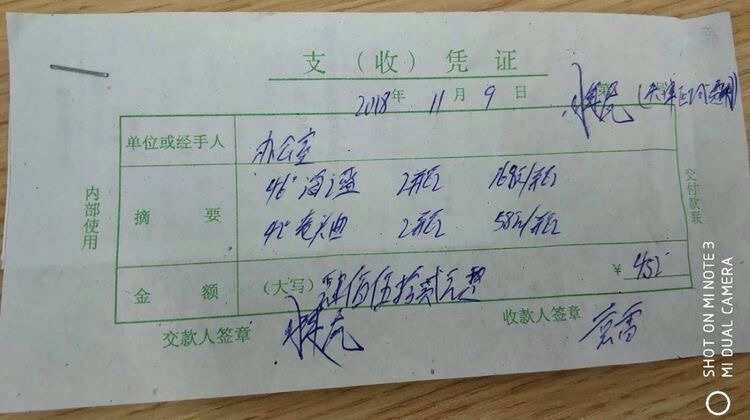 支（收）凭证
2018年 11月 9日
单位或经手人 办公室
摘要 46°海之蓝 2瓶 168元/瓶
42°老头曲 2瓶 58元/瓶
金额 （大写） 肆佰伍拾贰元整 ￥452
交款人签章 收款人签章
内部使用
交付款联
SHOT ON MI NOTE 3
MI DUAL CAMERA